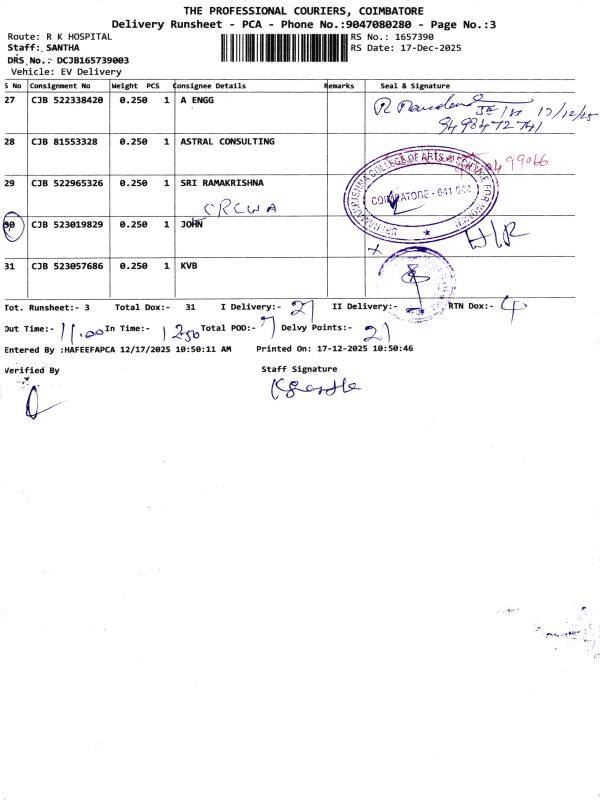 THE PROFESSIONAL COURIERS, COIMBATORE
Delivery Runsheet - PCA - Phone No.:9047080280 - Page No.:3
Route: R K HOSPITAL
RS No.: 1657390
Staff: SANTHA
RS Date: 17-Dec-2025
DRS No.: DCJB165739003
Vehicle: EV Delivery
S No Consignment No Weight PCS Consignee Details Remarks Seal & Signature
27 CJB 522338420 0.250 1 A ENGG
17/12/25
9498472741
28 CJB 81553328 0.250 1 ASTRAL CONSULTING
99066
29 CJB 522965326 0.250 1 SRI RAMAKRISHNA
SRCWA
SRI RAMAKRISHNA COLLEGE OF ARTS & SCIENCE FOR WOMEN
COIMBATORE - 641 044
30 CJB 523019829 0.250 1 JOHN
31 CJB 523057686 0.250 1 KVB
Tot. Runsheet:- 3 Total Dox:- 31 I Delivery:- 27 II Delivery:- RTN Dox:- 4
Out Time:- 11.00 In Time:- 1250 Total POD:- 7 Delvy Points:- 21
Entered By :HAFEEFAPCA 12/17/2025 10:50:11 AM Printed On: 17-12-2025 10:50:46
Verified By Staff Signature